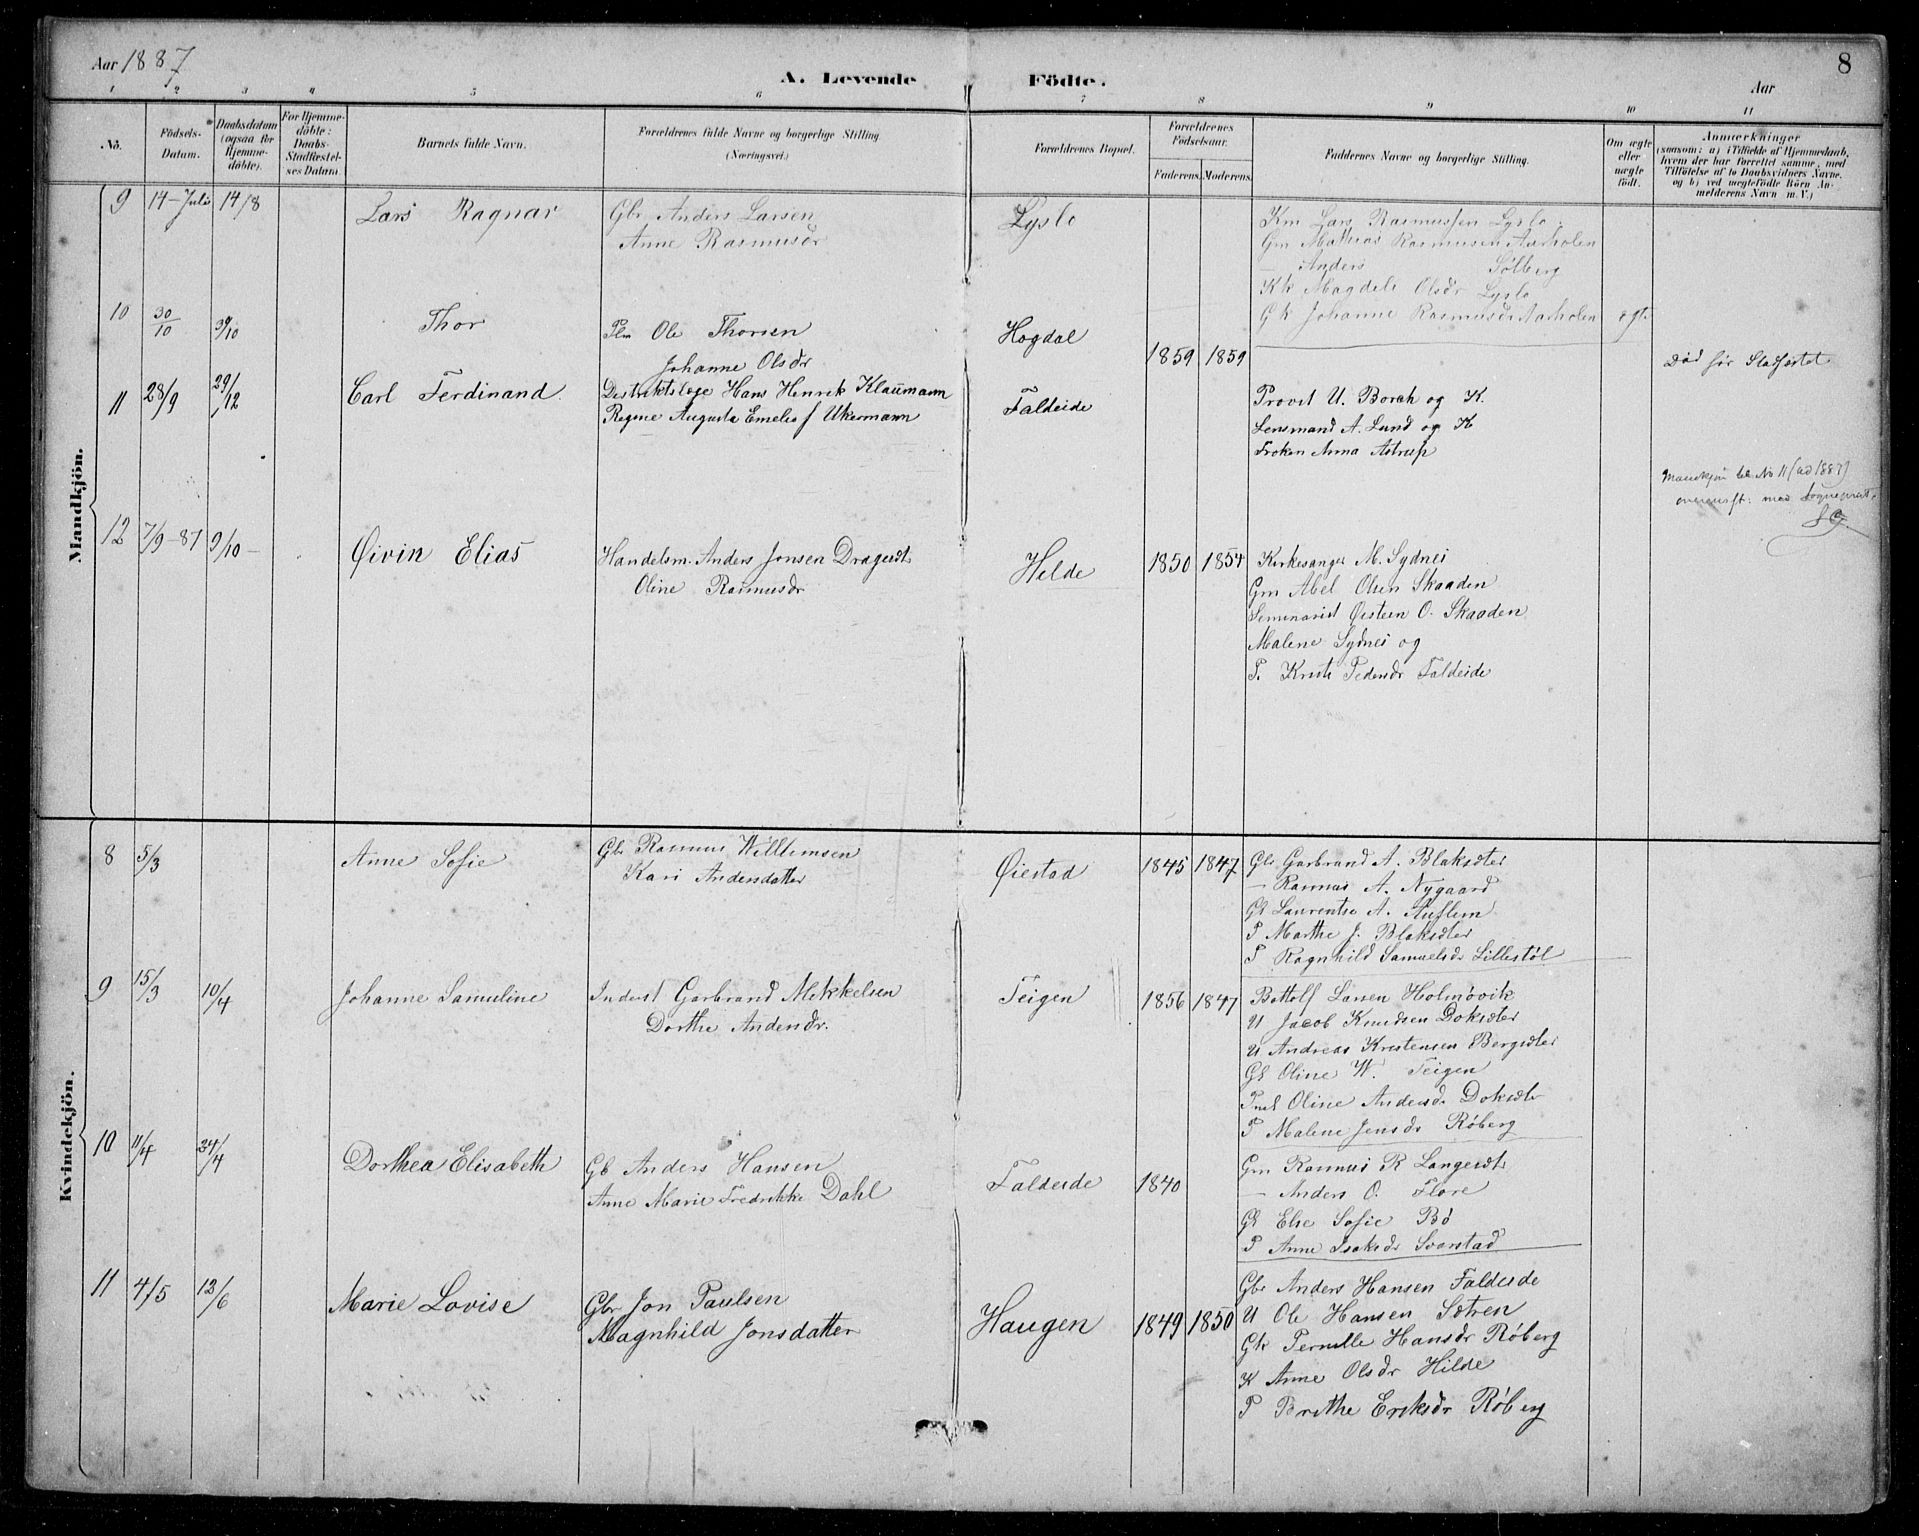 Aar 1887
A. Levende Födte.
8
Aar
1 2 3 4 5 6 7 8 9 10 11
No.
Födsels-
Datum.
Daabsdatum
(ogsaa for
Hjemme-
döbte).
For Hjemme-
döbte:
Daabs-
Stadfæstel-
ses Datum
Barnets fulde Navn.
Forældrenes fulde Navne og borgerlige Stilling
(Næringsvei.)
Forældrenes Bopæl.
Forældrenes
Födselsaar.
Faderens. Moderens.
Faddernes Navne og borgerlige Stilling.
Om ægte
eller
uægte
födt.
Anmærkninger
(saasom: a) i Tilfælde af Hjemmedaab,
hvem der har forrettet samme, med
Tilföielse af to Daabsvidners Navne.
og b) ved uægtefödte Börn An-
melderens Navn m. V.)
Mandkjön.
9 14-Juli 14/8 Lars Ragnar
Gbr Anders Larsen
Anne Rasmusdr
Lyslo
Km Lars Rasmussen Lyslo
Gm Mathias Rasmusen Aarholen
— Anders Sølberg
Kk Magdele Olsdr Lyslo
Gk Johanne Rasmusdr Aarholen
10 30/10 30/10 Thor
Plm Ole Thorsen
Johanne Olsdr
Hogdal 1859 1859 egt.
Död før Stadfæstet
11 28/9 29/12 Carl Ferdinand
Distriktslæge Hans Henrik Klaumann
Regine Augusta Emelie f Ukermann
Faldeide
Provst U. Borch og K.
Lensmand A. Lund og K
Frøken Anna Astrup
Mandkjøn bl. No 11 (ad 1887)
overensst: med Sognepræst.
12 7/9-87 9/10- Øivin Elias
Handelsm. Anders Jonsen Dragesdt
Oline Rasmusdr
Hilde 1850 1854
Kirkesanger M. Sydnes
Gm Abel Olsen Skaaden
Seminarist Øisteen O. Skaaden
Malene Sydnes og
P. Kristi Pedersdr Faldeide
Kvindekjön.
8 5/3 Anne Sofie
Gbr Rasmus Willumsen
Kari Andersdatter
Øiestad 1845 1847
Gbr Garbrand A. Blaksæter
— Rasmus A. Nygaard
Gk Laurentse A. Auflem
P Marthe J. Blaksæter
P Ragnhild Samuelsdr Lillestøl
9 15/3 10/4 Johanne Samuline
Inderst Garbrand Mikkelsen
Dorthe Andersdr.
Teigen 1856 1847
Bottolf Larsen Holmøvik
U Jacob Knudsen Doksæter
U Andreas Kristensen Bergsæter
Gk Oline W. Teigen
Oline Andersd. Doksæter
P Malene Jensdr Røberg
10 11/4 24/4 Dorthea Elisabeth
Gb Anders Hansen
Anne Marie Fredrikke Dahl
Faldeide 1840
Gm Rasmus R Langesdt
— Anders O. Flore
Gk Else Sofie Bø
P Anne Isaksdr Svarstad
11 4/5 12/6 Marie Lovise
Gbr Jon Paulsen
Magnhild Jonsdatter
Haugen 1849 1850
Gbr Anders Hansen Faldeide
U Ole Hansen Sætren
Gk Pernille Hansdr Røberg
K Anne Olsdr Hilde
P Brithe Eriksdr Røberg